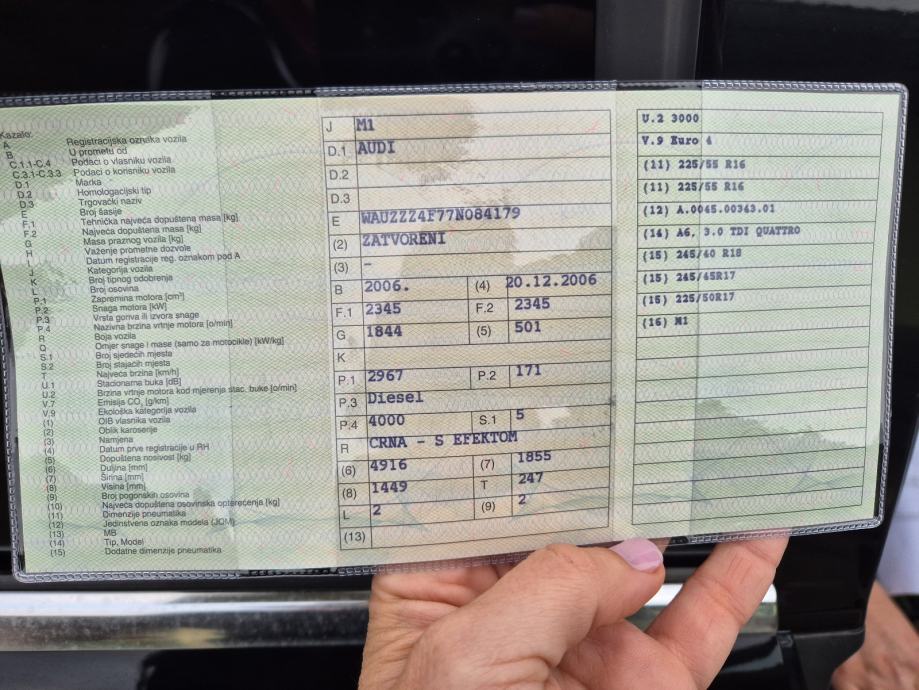 Kazalo:
A Registracijska oznaka vozila
B U prometu od
C.1.1-C.4 Podaci o vlasniku vozila
C.3.1-C.3.3 Podaci o korisniku vozila
D.1 Marka
D.2 Homologacijski tip
D.3 Trgovački naziv
E Broj šasije
F.1 Tehnička najveća dopuštena masa [kg]
F.2 Najveća dopuštena masa [kg]
G Masa praznog vozila [kg]
H Važenje prometne dozvole
I Datum registracije reg. oznakom pod A
J Kategorija vozila
K Broj tipnog odobrenja
L Broj osovina
P.1 Zapremina motora [cm³]
P.2 Snaga motora [kW]
P.3 Vrsta goriva ili izvora snage
P.4 Nazivna brzina vrtnje motora [o/min]
R Boja vozila
Q Omjer snage i mase (samo za motocikle) [kW/kg]
S.1 Broj sjedećih mjesta
S.2 Broj stajaćih mjesta
T Najveća brzina [km/h]
U.1 Stacionarna buka [dB]
U.2 Brzina vrtnje motora kod mjerenja stac. buke [o/min]
V.7 Emisija CO₂ [g/km]
V.9 Ekološka kategorija vozila
(1) OIB vlasnika vozila
(2) Oblik karoserije
(3) Namjena
(4) Datum prve registracije u RH
(5) Dopuštena nosivost [kg]
(6) Duljina [mm]
(7) Širina [mm]
(8) Visina [mm]
(9) Broj pogonskih osovina
(10) Najveća dopuštena osovinska opterećenja [kg]
(11) Dimenzije pneumatika
(12) Jedinstvena oznaka modela (JOM)
(13) MB
(14) Tip, Model
(15) Dodatne dimenzije pneumatika
J M1
D.1 AUDI
D.2
D.3
E WAUZZZ4F77N084179
(2) ZATVORENI
(3) -
B 2006. (4) 20.12.2006
F.1 2345 F.2 2345
G 1844 (5) 501
K
P.1 2967 P.2 171
P.3 Diesel
P.4 4000 S.1 5
R CRNA - S EFEKTOM
(6) 4916 (7) 1855
(8) 1449 T 247
L 2 (9) 2
(13)
U.2 3000
V.9 Euro 4
(11) 225/55 R16
(11) 225/55 R16
(12) A.0065.00363.01
(14) A6, 3.0 TDI QUATTRO
(15) 245/40 R18
(15) 245/45R17
(15) 225/50R17
(16) M1